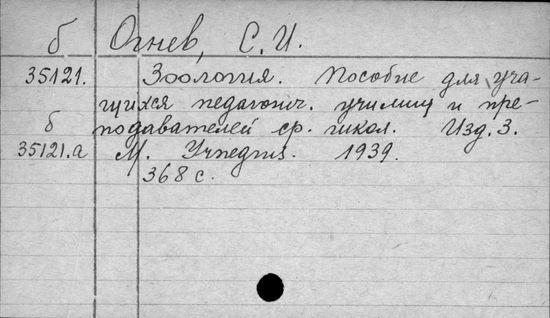 б Огнев, С.И.
35121. Зоология. Пособие для уча-
щихся педагогич. училищ и пре-
б подавателей ср. школ. Изд. 3.
35121.а М. Учпедгиз. 1939.
368 с.